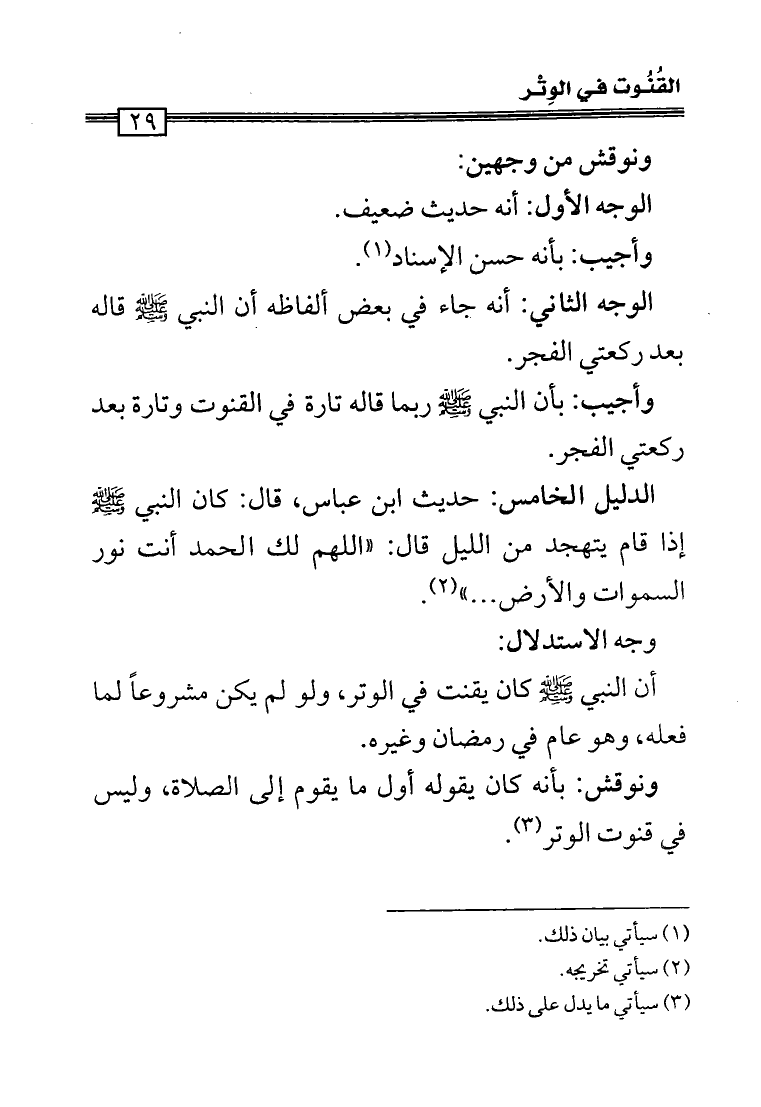 القُنُوت في الوِتْر
٢٩
ونوقش من وجهين:
الوجه الأول: أنه حديث ضعيف.
وأجيب: بأنه حسن الإسناد(١).
الوجه الثاني: أنه جاء في بعض ألفاظه أن النبي ﷺ قاله
بعد ركعتي الفجر.
وأجيب: بأن النبي ﷺ ربما قاله تارة في القنوت وتارة بعد
ركعتي الفجر.
الدليل الخامس: حديث ابن عباس، قال: كان النبي ﷺ
إذا قام يتهجد من الليل قال: «اللهم لك الحمد أنت نور
السموات والأرض...»(٢).
وجه الاستدلال:
أن النبي ﷺ كان يقنت في الوتر، ولو لم يكن مشروعاً لما
فعله، وهو عام في رمضان وغيره.
ونوقش: بأنه كان يقوله أول ما يقوم إلى الصلاة، وليس
في قنوت الوتر(٣).
(١) سيأتي بيان ذلك.
(٢) سيأتي تخريجه.
(٣) سيأتي ما يدل على ذلك.